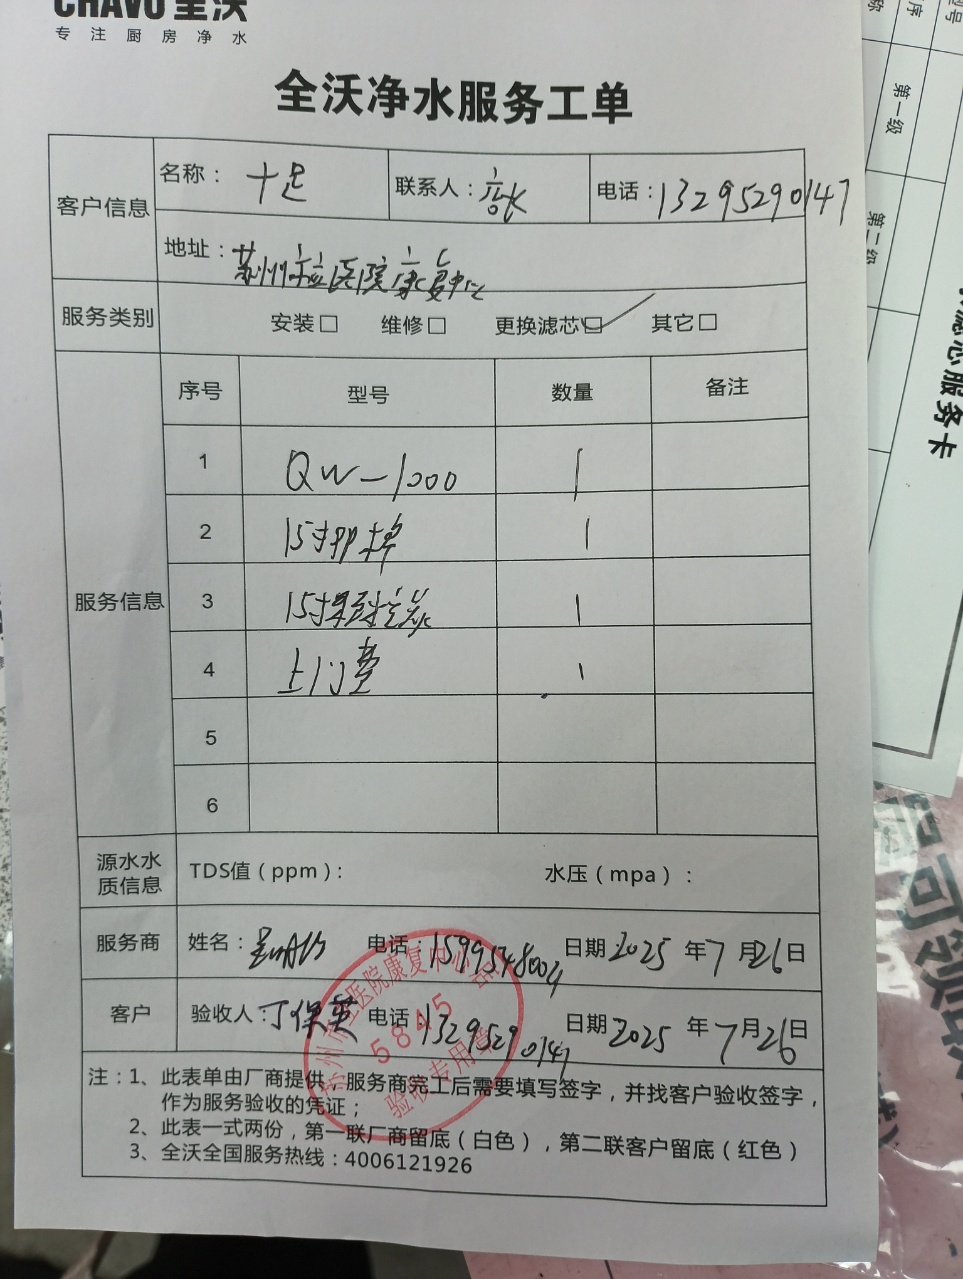 CHAVO全沃
专注厨房净水
全沃净水服务工单
客户信息
名称： 十足
联系人：
电话：13295290147
地址：苏州市立医院康复中心
服务类别
安装□ 维修□ 更换滤芯☑ 其它□
服务信息
序号 型号 数量 备注
1 QW-1000 1
2 15寸PP棉 1
3 15寸颗粒炭 1
4 上门费 1
5
6
源水水质信息
TDS值（ppm）： 水压（mpa）：
服务商
姓名： 电话：15995548004 日期2025年7月26日
客户
验收人：丁保英 电话13295290147 日期2025年7月26日
苏州市立医院康复中心店
5845
验收专用章
注：1、此表单由厂商提供，服务商完工后需要填写签字，并找客户验收签字，
作为服务验收的凭证；
2、此表一式两份，第一联厂商留底（白色），第二联客户留底（红色）
3、全沃全国服务热线：4006121926
型号
序
称
第一级
第二级
滤芯服务卡